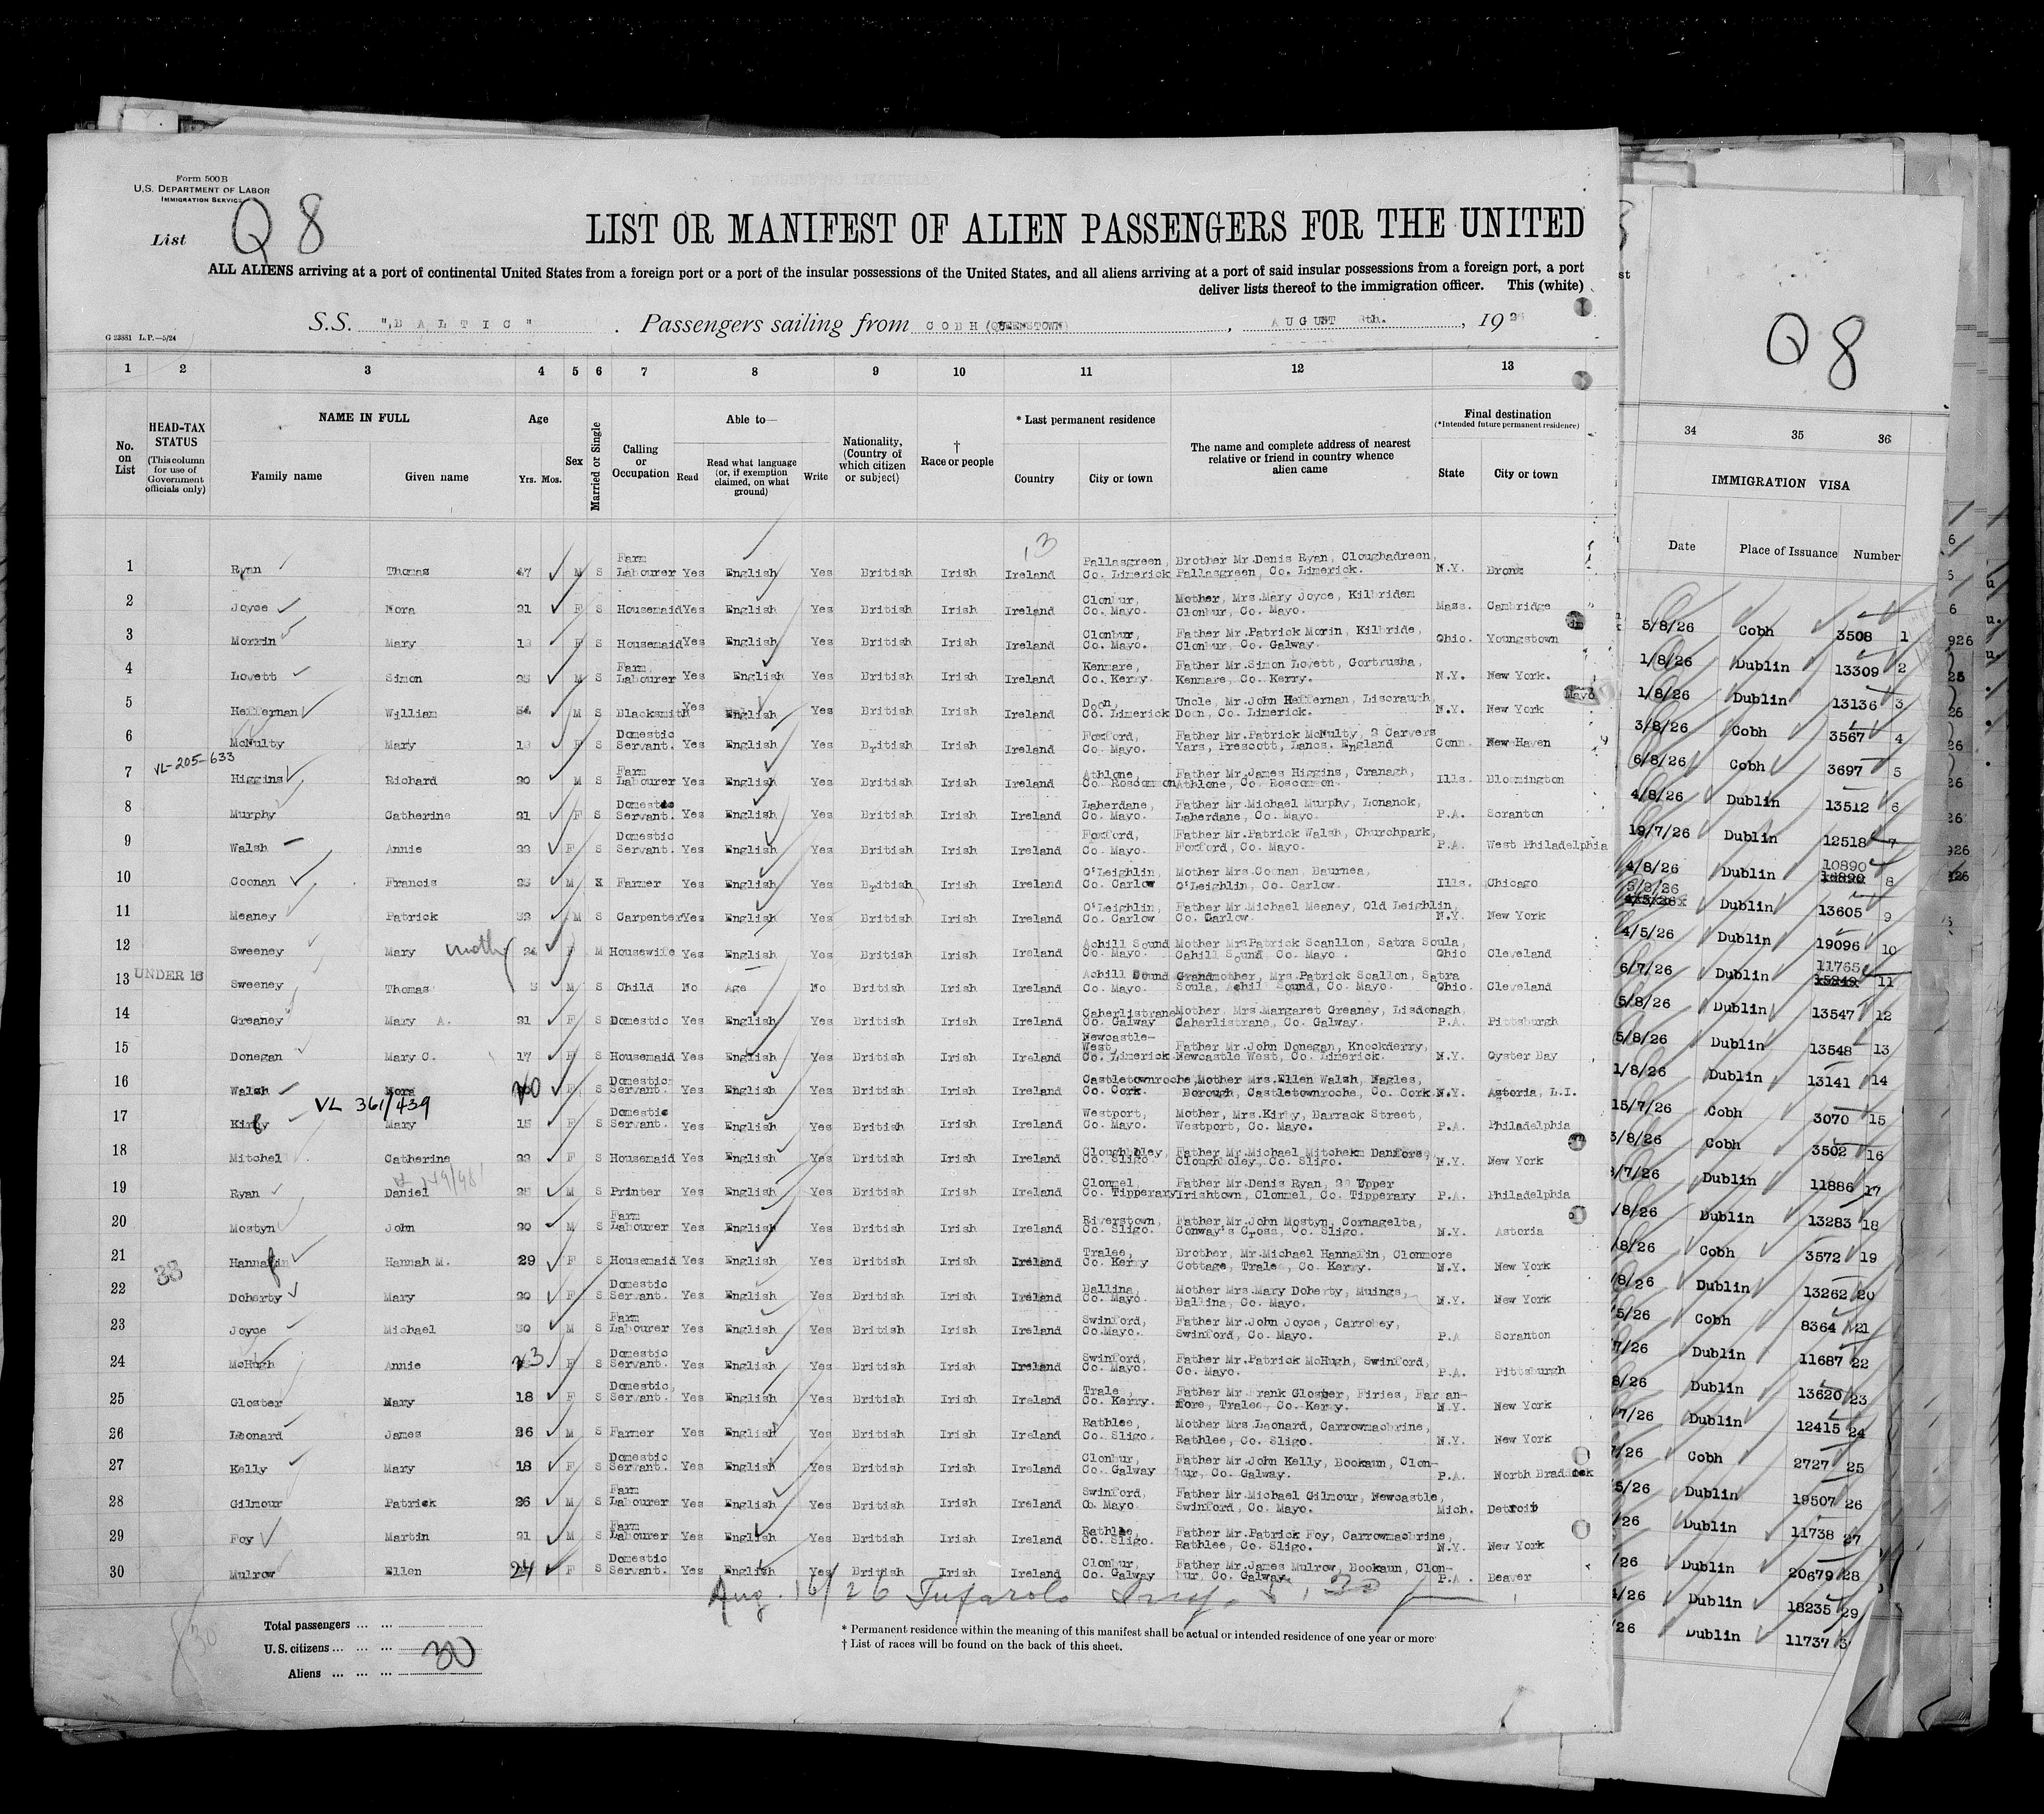 Form 500B
U.S. DEPARTMENT OF LABOR
IMMIGRATION SERVICE
List Q 8
LIST OR MANIFEST OF ALIEN PASSENGERS FOR THE UNITED
ALL ALIENS arriving at a port of continental United States from a foreign port or a port of the insular possessions of the United States, and all aliens arriving at a port of said insular possessions from a foreign port, a port
deliver lists thereof to the immigration officer. This (white)
S.S. "BALTIC" . Passengers sailing from COBH (QUEENSTOWN) , AUGUST 8th. , 1926
G 23881 L.P.—5/24
1 2 3 4 5 6 7 8 9 10 11 12 13
No. on List
HEAD-TAX STATUS (This column for use of Government officials only)
NAME IN FULL
Family name Given name
Age Yrs. Mos.
Sex
Married or Single
Calling or Occupation
Able to—
Read Read what language (or, if exemption claimed, on what ground) Write
Nationality, (Country of which citizen or subject)
† Race or people
* Last permanent residence
Country City or town
The name and complete address of nearest relative or friend in country whence alien came
Final destination
(*Intended future permanent residence)
State City or town
13
1 Ryan Thomas 47 M S Farm Labourer Yes English Yes British Irish Ireland Pallasgreen, Co. Limerick Brother Mr.Denis Ryan, Cloughadreen, Pallasgreen, Co. Limerick. N.Y. Bronx
2 Joyce Nora 21 F S Housemaid Yes English Yes British Irish Ireland Clonbur, Co. Mayo. Mother, Mrs.Mary Joyce, Kilbridem Clonbur, Co. Mayo. Mass. Cambridge
3 Morrin Mary 18 F S Housemaid Yes English Yes British Irish Ireland Clonbur, Co. Mayo. Father Mr.Patrick Morin, Kilbride, Clonbur, Co. Galway. Ohio. Youngstown
4 Lovett Simon 25 M S Farm Labourer Yes English Yes British Irish Ireland Kenmare, Co. Kerry Father Mr.Simon Lovett, Gortrusha, Kenmare, Co. Kerry. N.Y. New York.
5 Heffernan William M S Blacksmith Yes English Yes British Irish Ireland Doon, Co. Limerick Uncle, Mr.John Heffernan, Liscraugh, Doon, Co. Limerick. N.Y. New York
6 McNulty Mary 18 F S Domestic Servant. Yes English Yes British Irish Ireland Foxford, Co. Mayo. Father Mr.Patrick McNulty, 2 Carvers Yars, Prescott, Lancs. England Conn. New Haven
VL-205-633
7 Higgins Richard 20 M S Farm Labourer Yes English Yes British Irish Ireland Athlone, Co. Roscommon Father Mr.James Higgins, Cranagh, Athlone, Co. Roscommon. Ills. Bloomington
8 Murphy Catherine 21 F S Domestic Servant. Yes English Yes British Irish Ireland Laherdane, Co. Mayo. Father Mr.Michael Murphy, Lonanok, Laherdane, Co. Mayo. P.A. Scranton
9 Walsh Annie 22 F S Domestic Servant. Yes English Yes British Irish Ireland Foxford, Co. Mayo. Father Mr.Patrick Walsh, Churchpark, Foxford, Co. Mayo. P.A. West Philadelphia
10 Coonan Francis 25 M Farmer Yes English Yes British Irish Ireland O'Leighlin, Co. Carlow Mother Mrs.Coonan, Baurnea, O'Leighlin, Co. Carlow. Ills. Chicago
11 Meaney Patrick M S Carpenter Yes English Yes British Irish Ireland O'Leighlin, Co. Carlow Father Mr.Michael Meaney, Old Leighlin, Co. Carlow. N.Y. New York
12 Sweeney Mary moth 24 F M Housewife Yes English Yes British Irish Ireland Achill Sound Co. Mayo. Mother Mrs.Patrick Scanllon, Satra Soula, Cahill Sound, Co. Mayo. Ohio Cleveland
13 UNDER 16 Sweeney Thomas 5 M S Child No Age No British Irish Ireland Achill Sound Co. Mayo. Grandmother, Mrs.Patrick Scallon, Satra Soula, Achil Sound, Co. Mayo. Ohio. Cleveland
14 Greaney Mary A. 21 F S Domestic Yes English Yes British Irish Ireland Caherlistrane Co. Galway Mother, Mrs.Margaret Greaney, Lisdonagh, Caherlistrane, Co. Galway. P.A. Pittsburgh
15 Donegan Mary C. 17 F S Housemaid Yes English Yes British Irish Ireland Newcastle-West, Co. Limerick Father Mr.John Donegan, Knockderry, Newcastle West, Co. Limerick. N.Y. Oyster Bay
16 Walsh Nora 20 F S Domestic Servant. Yes English Yes British Irish Ireland Castletownroche, Co. Cork Mother Mrs.Ellen Walsh, Nagles, Borough, Castletownroche, Co. Cork N.Y. Astoria, L.I.
VL 361/439
17 Kirby Mary 15 F S Domestic Servant. Yes English Yes British Irish Ireland Westport, Co. Mayo. Mother, Mrs.Kirby, Barrack Street, Westport, Co. Mayo. P.A. Philadelphia
18 Mitchel Catherine 22 F S Housemaid Yes English Yes British Irish Ireland Co. Sligo. Father Mr.Michael Mitchekm Danfore, Cloughboley, Co. Sligo. N.Y. New York
19 Ryan Daniel 25 M S Printer Yes English Yes British Irish Ireland Clonmel, Co. Tipperary Father Mr.Denis Ryan, 22 Upper Irishtown, Clonmel, Co. Tipperary P.A. Philadelphia
20 Mostyn John 20 M S Farm Labourer Yes English Yes British Irish Ireland Riverstown, Co. Sligo. Father Mr.John Mostyn, Cornagelta, Conway's Cross, Co. Sligo. N.Y. Astoria
21 38 Hannafin Hannah M. 29 F S Housemaid Yes English Yes British Irish Ireland Tralee, Co. Kerry Brother, Mr.Michael Hannafin, Clonmore Cottage, Tralee, Co. Kerry. N.Y. New York
22 Doherty Mary 20 F S Domestic Servant. Yes English Yes British Irish Ireland Ballina, Co. Mayo. Mother Mrs.Mary Doherty, Muings, Ballina, Co. Mayo. N.Y. New York
23 Joyce Michael 30 M S Farm Labourer Yes English Yes British Irish Ireland Swinford, Co.Mayo. Father Mr.John Joyce, Carrohey, Swinford, Co. Mayo. P.A Scranton
24 McHugh Annie 23 F S Domestic Servant. Yes English Yes British Irish Ireland Swinford, Co. Mayo. Father Mr.Patrick McHugh, Swinford, Co. Mayo. P.A. Pittsburgh
25 Gloster Mary 18 F S Domestic Servant. Yes English Yes British Irish Ireland Trale, Co. Kerry. Father Mr.Frank Gloster, Firies, Farran-fore, Tralee, Co. Kerry. N.Y. New York
26 Leonard James 26 M S Farmer Yes English Yes British Irish Ireland Rathlee, Co. Sligo. Mother Mrs.Leonard, Carrowmacbrine, Rathlee, Co. Sligo. N.Y. New York
27 Kelly Mary 18 F S Domestic Servant. Yes English Yes British Irish Ireland Clonbur, Co. Galway Father Mr.John Kelly, Bookaun, Clon-bur, Co. Galway. P.A. North Braddock
28 Gilmour Patrick 26 M S Farm Labourer Yes English Yes British Irish Ireland Swinford, Co. Mayo Father Mr.Michael Gilmour, Newcastle, Swinford, Co. Mayo. Mich. Detroit
29 Foy Martin 21 M S Farm Labourer Yes English Yes British Irish Ireland Rathlee, Co. Sligo. Father Mr.Patrick Foy, Carrowmacbrine, Rathlee, Co. Sligo. N.Y. New York
30 Mulrow Ellen 24 F S Domestic Servant. Yes English Yes British Irish Ireland Clonbur, Co. Galway Father Mr.James Mulrow, Bookaun, Clon-bur, Co. Galway. P.A. Beaver
Aug. 16/26
Total passengers ... ...
U.S. citizens ... ... ... 30
Aliens ... ... ...
* Permanent residence within the meaning of this manifest shall be actual or intended residence of one year or more
† List of races will be found on the back of this sheet.
Q 8
34 35 36
IMMIGRATION VISA
Date Place of Issuance Number
5/8/26 Cobh 3508 1
1/8/26 Dublin 13309 2
1/8/26 Dublin 13136 3
3/8/26 Cobh 3567 4
6/8/26 Cobh 3697 5
4/8/26 Dublin 13512 6
19/7/26 Dublin 12518 7
4/8/26 Dublin 10890 8
5/8/26 Dublin 13605 9
4/5/26 Dublin 19096 10
6/7/26 Dublin 11765 11
5/8/26 Dublin 13547 12
5/8/26 Dublin 13548 13
1/8/26 Dublin 13141 14
15/7/26 Cobh 3070 15
3/8/26 Cobh 3502 16
/7/26 Dublin 11886 17
/8/26 Dublin 13283 18
/8/26 Cobh 3572 19
/8/26 Dublin 13262 20
/5/26 Cobh 8364 21
7/26 Dublin 11687 22
8/26 Dublin 13620 23
/7/26 Dublin 12415 24
/26 Cobh 2727 25
5/26 Dublin 19507 26
/26 Dublin 11738 27
/26 Dublin 20679 28
/26 Dublin 18235 29
/26 Dublin 11737